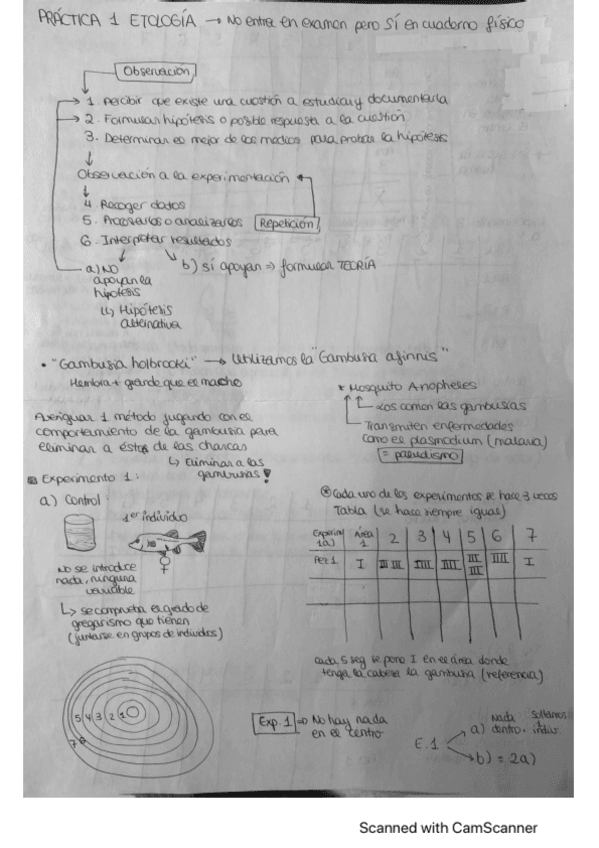 PRÁCTICA 1 ETOLOGÍA → No entra en examen pero SÍ en cuaderno físico
Observación
1. Percibir que existe una cuestión a estudiar y documentarla
2. Formular hipótesis o posible respuesta a la cuestión
3. Determinar el mejor de los medios para probar la hipótesis
Observación a la experimentación
4. Recoger datos
5. Procesarlos o analizarlos
Repetición
6. Interpretar resultados
a) NO apoyan la hipótesis
b) sí apoyan ⇒ formular TEORÍA
Hipótesis alternativa
• "Gambusia holbrooki" → Utilizamos la "Gambusia afinnis"
Hembra + grande que el macho
* Mosquito Anopheles
Los comen las gambusias
Transmiten enfermedades
como el plasmodium (malaria)
= paludismo
Averiguar 1 método jugando con el
comportamiento de la gambusia para
eliminar a éstas de las charcas
↳ Eliminar a las
gambusias!
Experimento 1:
a) Control:
1er individuo
♀
No se introduce
nada, ninguna
variable
↳ se comprueba el grado de
gregarismo que tienen
(juntarse en grupos de individuos)
* Cada uno de los experimentos se hace 3 veces
Tabla (se hace siempre igual)
Área 1 2 3 4 5 6 7
Pez 1
Cada 5 seg se pone I en el área donde
tenga la cabeza la gambusia (referencia)
5 4 3 2 1
7
Exp. 1 ⇒ No hay nada
en el centro
E.1
a) Nada dentro.
b) = 2a)
Scanned with CamScanner